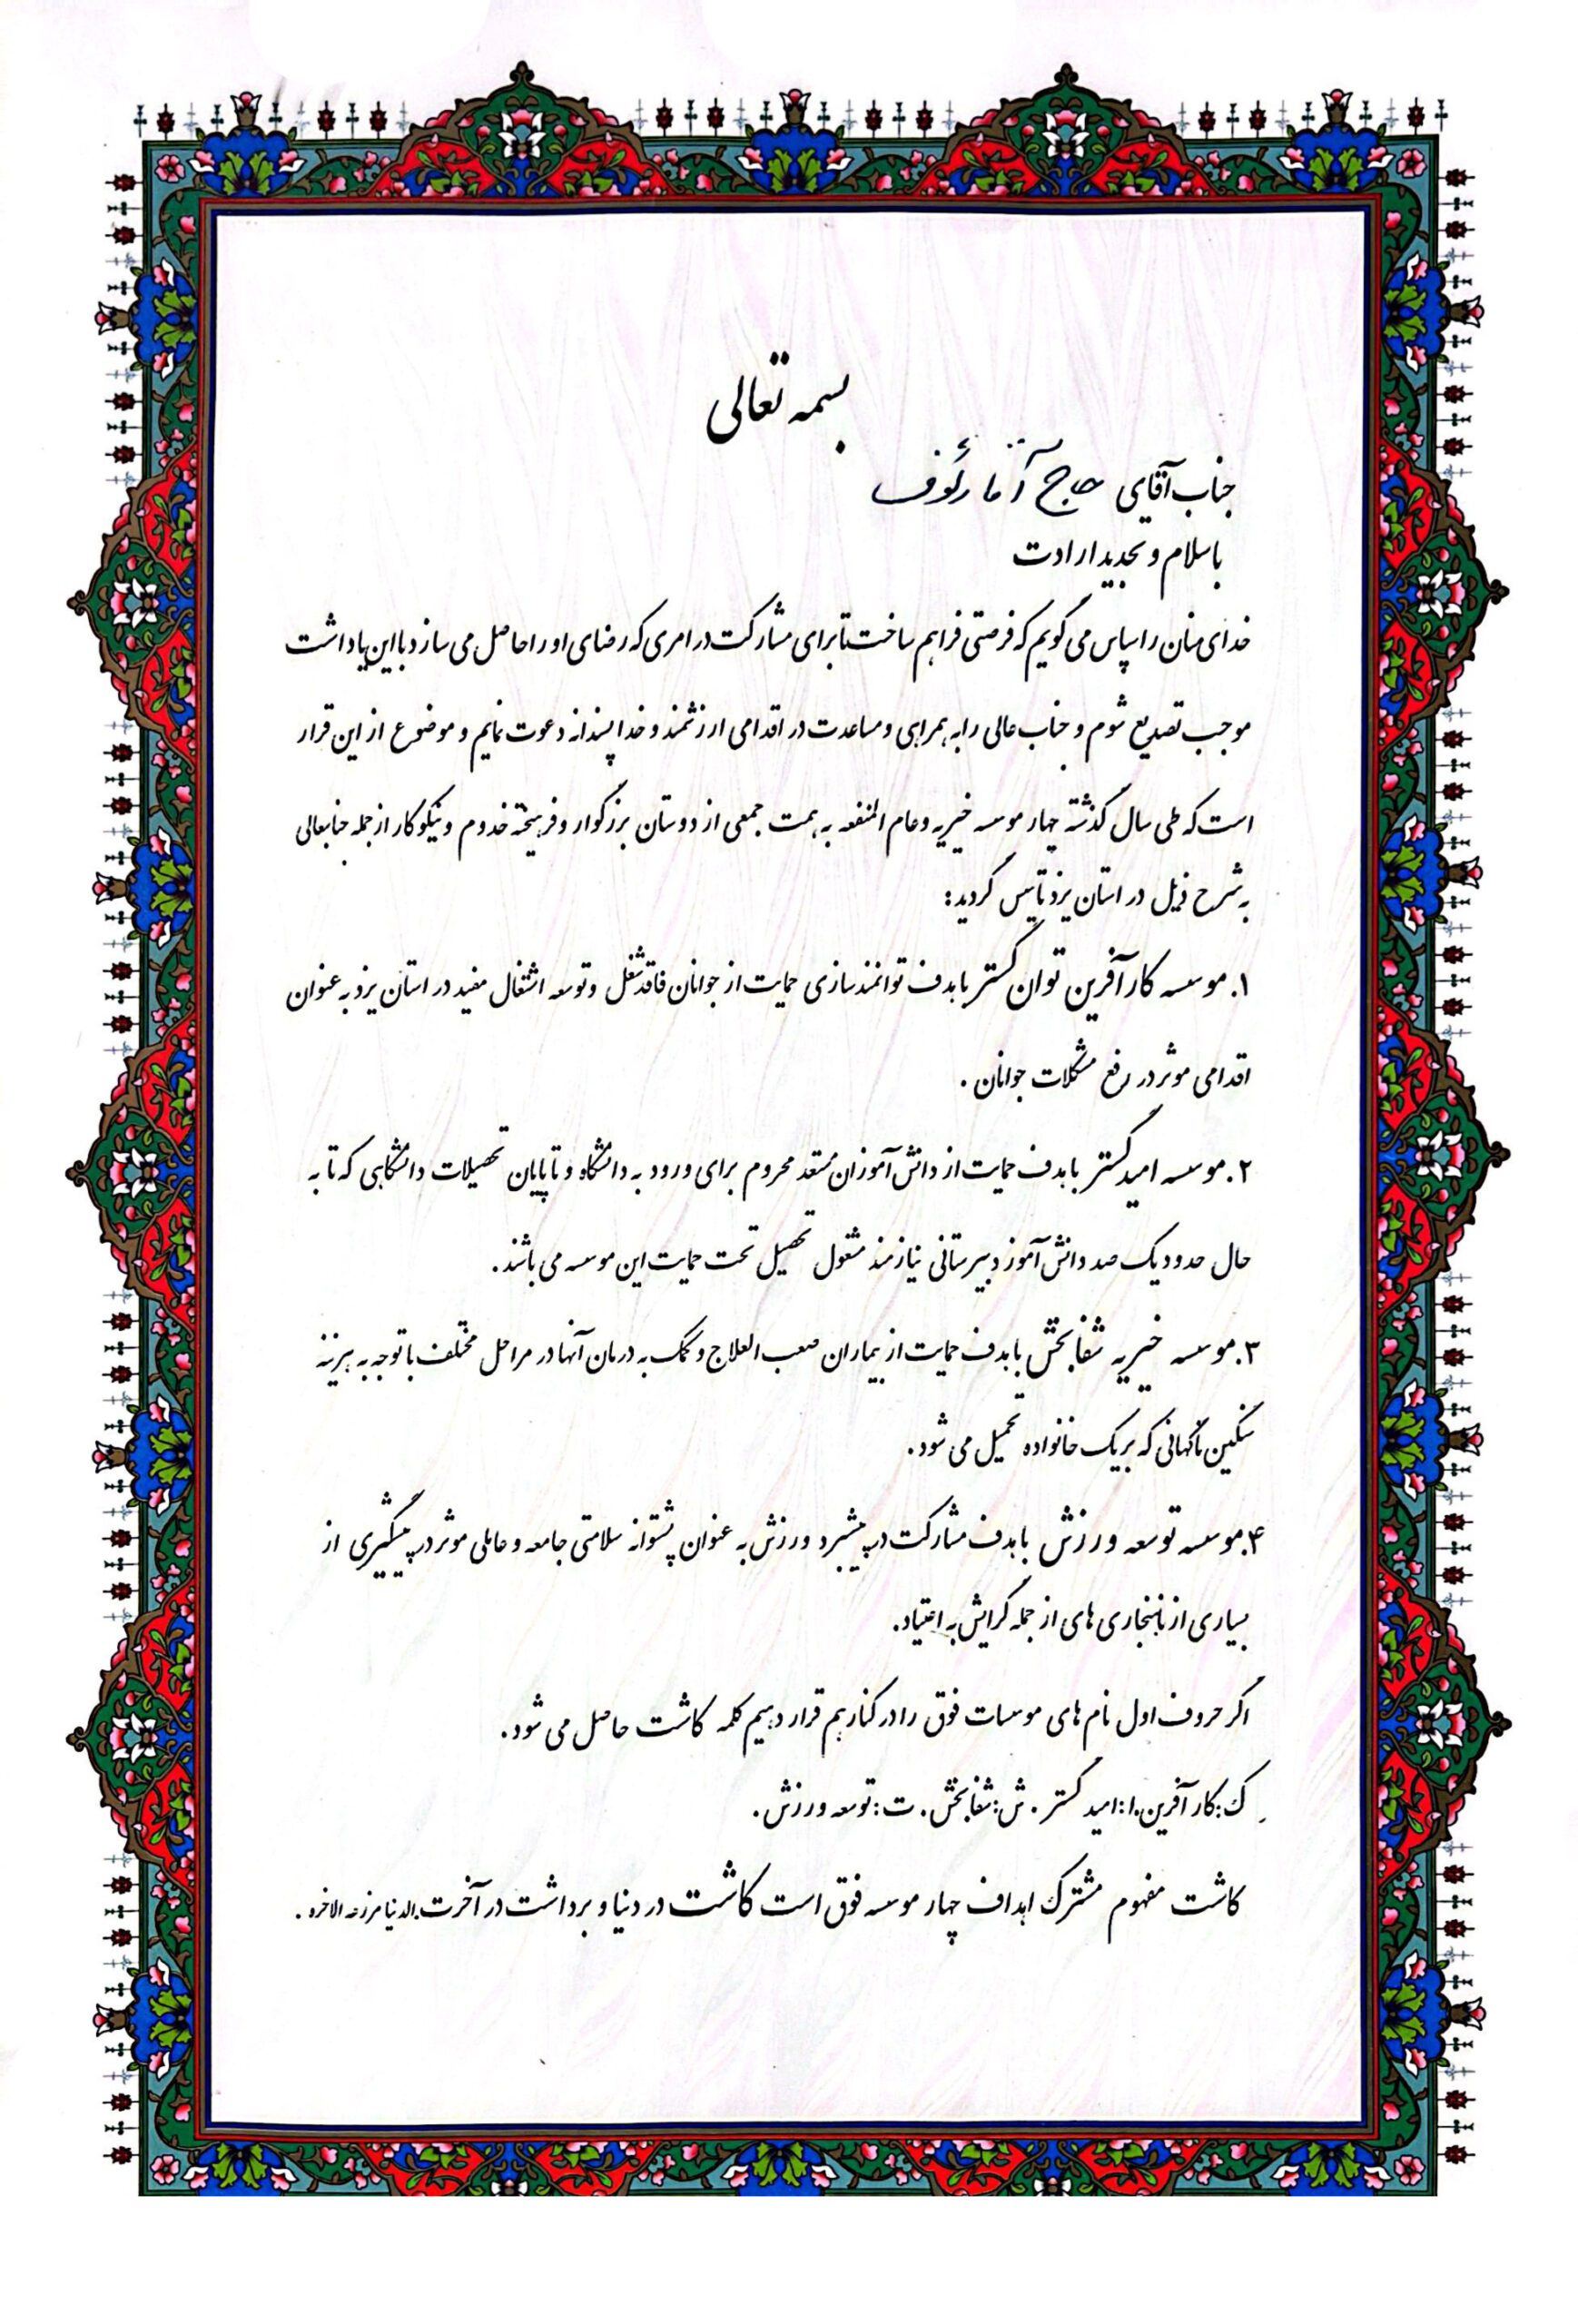 بسمه تعالی
جناب آقای حاج آقا رئوف
با سلام و تجدید ارادت
خدای منان را سپاس می گویم که فرصتی فراهم ساخت تا برای مشارکت در امری که رضای او را حاصل می سازد با این یادداشت
موجب تصدیع شوم و جناب عالی را به همراهی و مساعدت در اقدامی ارزشمند و خداپسندانه دعوت نمایم و موضوع از این قرار
است که طی سال گذشته چهار موسسه خیریه و عام المنفعه به همت جمعی از دوستان بزرگوار و فرهیخته خدوم و نیکوکار از جمله جنابعالی
به شرح ذیل در استان یزد تاسیس گردید:
۱. موسسه کارآفرین توان گستر با هدف توانمندسازی حمایت از جوانان فاقد شغل و توسعه اشتغال مفید در استان یزد به عنوان
اقدامی موثر در رفع مشکلات جوانان.
۲. موسسه امید گستر با هدف حمایت از دانش آموزان مستعد محروم برای ورود به دانشگاه و تا پایان تحصیلات دانشگاهی که تا به
حال حدود یک صد دانش آموز دبیرستانی نیازمند مشغول تحصیل تحت حمایت این موسسه می باشند.
۳. موسسه خیریه شفابخش با هدف حمایت از بیماران صعب العلاج و کمک به درمان آنها در مراحل مختلف با توجه به هزینه
سنگین ناگهانی که بر یک خانواده تحمیل می شود.
۴. موسسه توسعه ورزش با هدف مشارکت در پیشبرد ورزش به عنوان پشتوانه سلامتی جامعه و عاملی موثر در پیشگیری از
بسیاری از ناهنجاری های از جمله گرایش به اعتیاد.
اگر حروف اول نام های موسسات فوق را در کنار هم قرار دهیم کلمه کاشت حاصل می شود.
ک: کارآفرین. ا: امید گستر. ش: شفابخش. ت: توسعه ورزش.
کاشت مفهوم مشترک اهداف چهار موسسه فوق است کاشت در دنیا و برداشت در آخرت. الدنیا مزرعه الاخره.